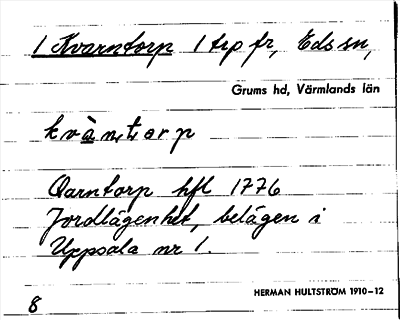 1 Kvarntorp 1 trp fr, Eds sn,
Grums hd, Värmlands län
kvà̀n,t,ɷrp
Qarntorp hfl 1776
Jordlägenhet, belägen i
Uppsala nr 1.
HERMAN HULTSTRÖM 1910–12
8